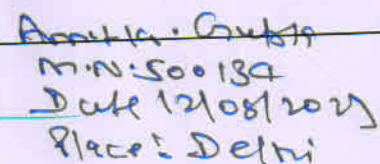 Amrita. Gupta
M.N. 500134
Date 12/08/2025
Place: Delhi